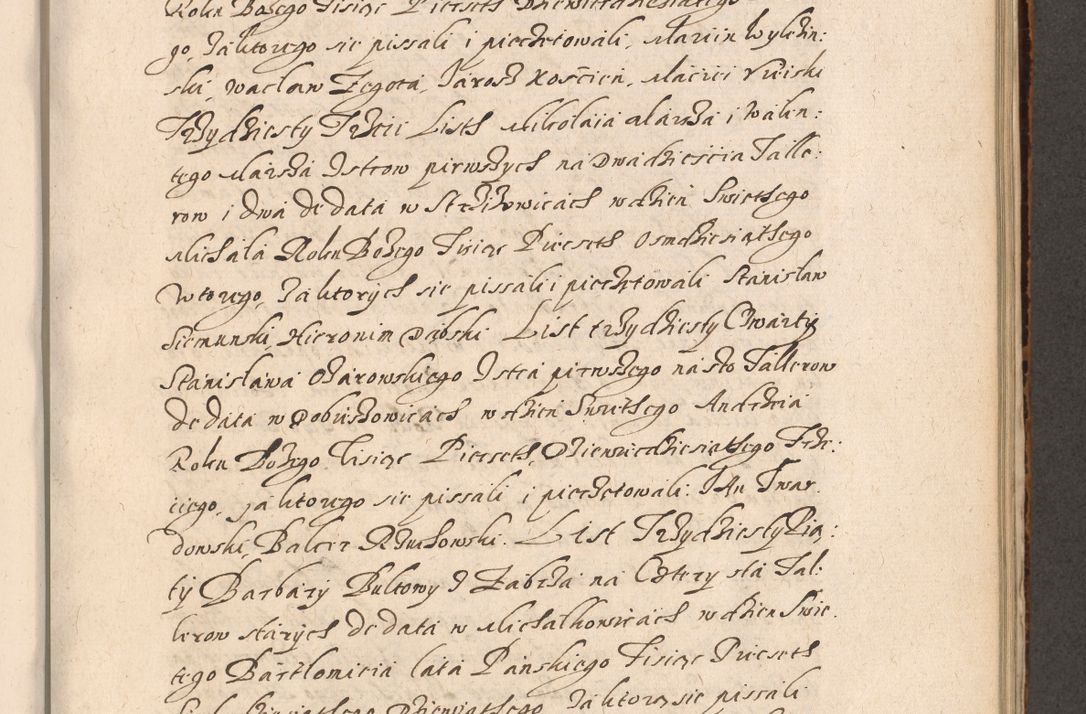 Roku Bożego Tisiąc Pięcset Dziewiecdziesiątego
go, Za ktorego się pissali i pieczętowali, Marcin Wylczin:
ski, Wacław Zegota, Jarosz Kościen, Maciei Ruiski
Trzydziesty Trzeci List Mikołaia Marszá i Walen:
tego Marszá Istcow pierwszych ná Dwádzieścia Talle:
row i dwá de data w Strzizowicách w dzień Swiętsego
Michała Roku Bożego Tisiąc Piecset Osmdziesiątsego
Wtorego, Za ktorych się pissáli i pieczętowali Stanisław
Siemunski, Hieronim Dąbski. List trzydziesty Cwarty
Stanisława Ożarowskiego Istca pierwszego na sto Tallerow
de data w Dobuszowicach w dzień Swiętsego Andrzeia
Roku Bożego Tisiąc Piecset, Dziewiecdziesiątsego Trze:
ciego, za ktorego się pissali i pieczętowali. Jan Twar
dowski, Balcer Rzuchowski. List Trzydziesty Pią:
ty Barbary Bultowy Z Zabrza na Cztery sta Tal:
lerow starych de data w Michałkowicach w dzien Swię
tego Bartłomieia lata Pańskiego Tisiąc Piecset
Dziewiątsego Za ktorą się pissali